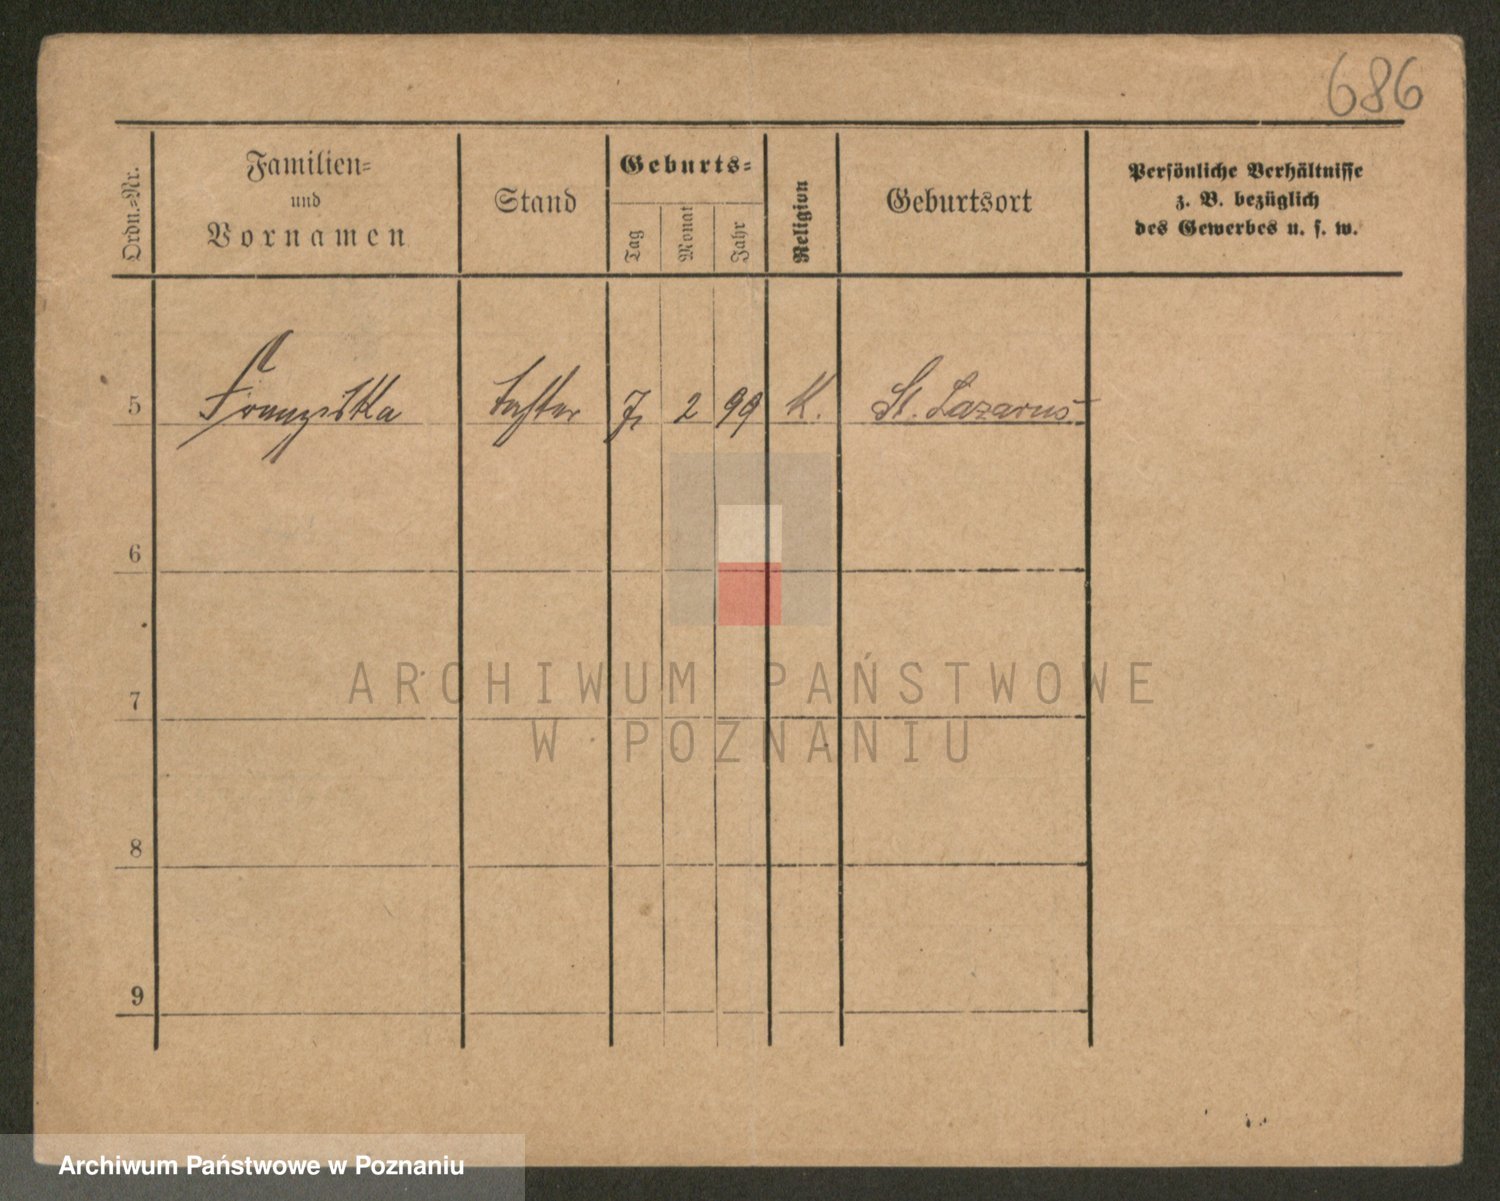 686
Ordn.-Nr.
Familien-
und
Vornamen
Stand
Geburts-
Tag
Monat
Jahr
Religion
Geburtsort
Persönliche Verhältnisse
z. B. bezüglich
des Gewerbes u. s. w.
5 Franziska Tochter 7. 2 99 K. St. Lazarus
6
7
8
9
ARCHIWUM PAŃSTWOWE
W POZNANIU
Archiwum Państwowe w Poznaniu